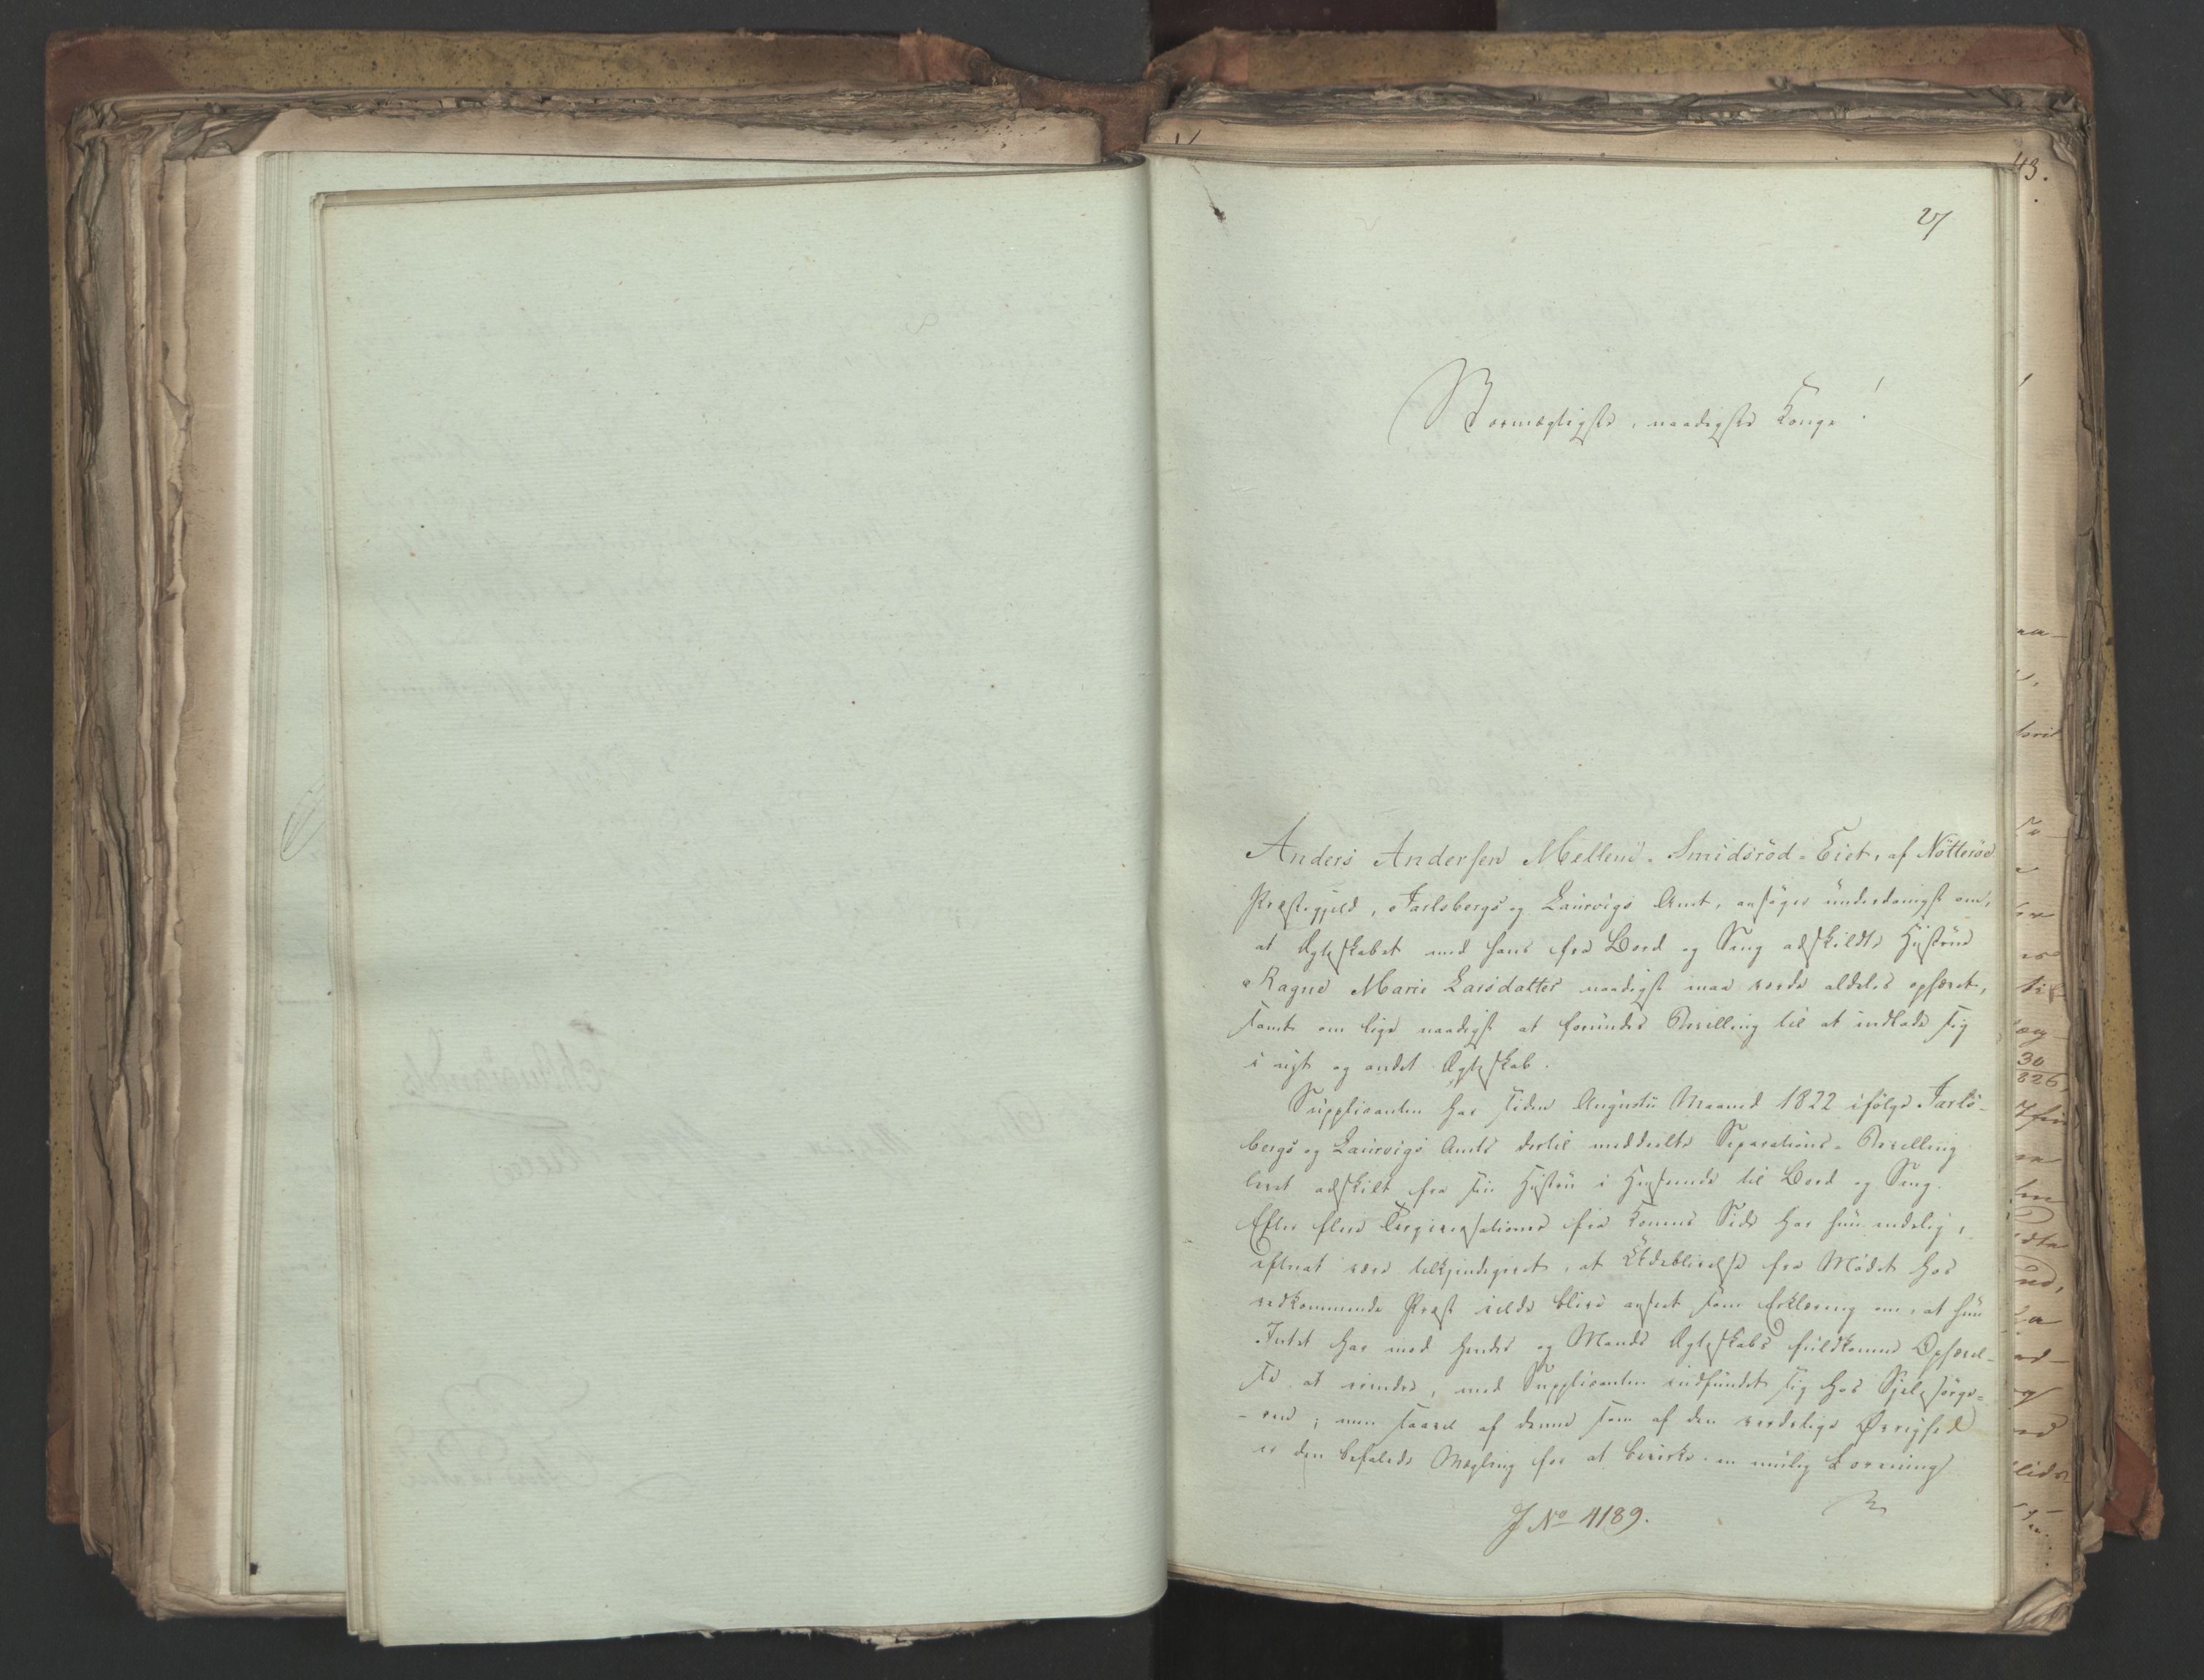 43.
27
Stormægtigste, naadigste Konge!
Anders Andersen Mellem-Smidsröd-Eiet, af Nötteröe
Præstegjeld, Jarlsbergs og Laurvigs Amt, ansöger underdanigst om,
at Ægteskabet med hans fra Bord og Seng adskildte Hustrue
Ragne Marie Larsdatter naadigst maa vorde aldeles ophævet,
samt om lige naadigst at forundes Bevilling til at indlade sig
i nyt og andet Ægteskab.
Supplicanten har siden Augustii Maaned 1822 ifölge Jarls-
bergs og Laurvigs Amts dertil meddeelte Separations-Bevilling
levet adskilt fra sin Hustru i Henseende til Bord og Seng.
Efter flere Tergiversationer fra Konens Side har hun endelig,
efterat være tilkjendegivet, at Udeblivelse fra Mödet hos
vedkommende Præst vilde blive anseet som Erklæring om, at hun
Intet har mod hendes og Mands Ægteskabs fuldkomne Ophævel-
se at erindre, med Supplicanten indfundet sig hos Sjelesörge-
ren; men saavel af denne som af den verdslige Övrighed
er den befalede Mægling for at bevirke en muelig Forening
J No 4189.